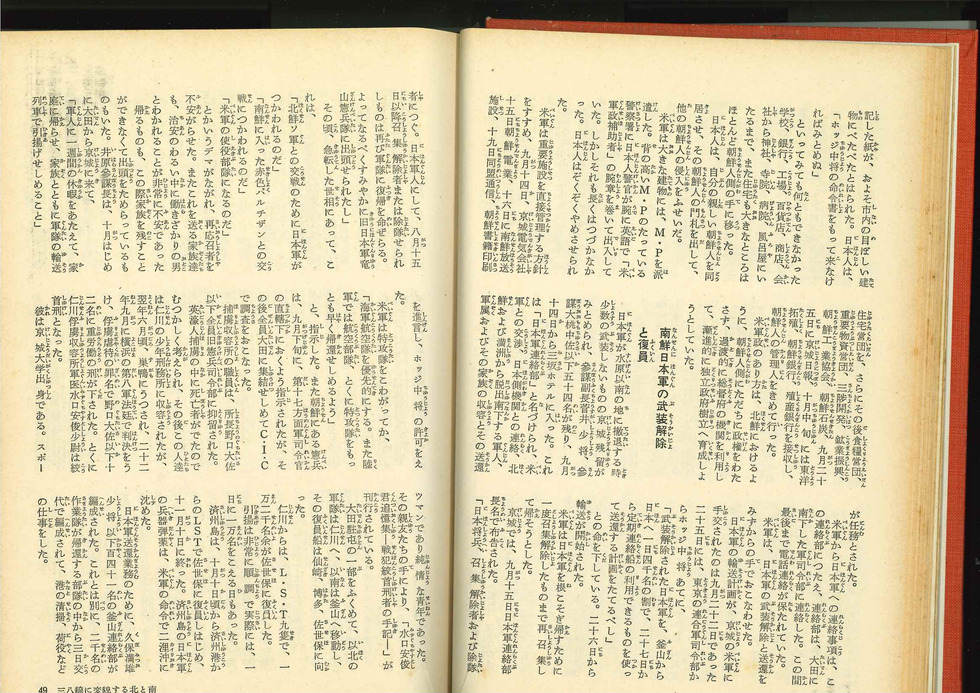 記した紙が、およそ市内の目ぼしい建
物にぺたぺたとはられた。日本人は、
「ホッジ中将の命令書をもって来なけ
ればみとめぬ」
といってみても何ともできなかった。
学校、銀行、工場、百貨店、商店、会
社から神社、寺院、病院、風呂屋にい
たるまで、また住宅も大きなところは
ほとんど朝鮮人の手に移った。
日本人は、自分の親しい朝鮮人を同
居させ、その朝鮮人の門札を出して、
他の朝鮮人の侵入をふせいだ。
米軍は大きな建物には、M・Pを派
遣した。背の高いM・Pのたっている
警察署に日本人警官が腕に英語で「米
軍政補助者」の腕章を巻いて出入して
いた。しかしそれも長くはつづかなか
った。日本人はぞくぞくやめさせられ
た。
米軍は重要施設を直接管理する方針
をすすめ、九月十四日、京城電気会社
十五日朝鮮重業、十六日に南鮮放送
施設、十九日同盟通信、朝鮮書籍印刷
住宅営団を、さらにその後食糧営団、
重要物資営団、三陟開発、鉱業振興、
朝鮮鉱業協会、朝鮮石炭、九月二十
五日に京城日報、十月中旬には東洋
拓殖、朝鮮銀行、殖産銀行を接収し、
朝鮮人の管理人をきめて行った。
米軍政のあり方は、北鮮におけるよ
うに、朝鮮人側にただちに政権をわた
さず、過渡的に総督府の機関を利用し
て、漸進的に独立政府樹立に育成しよ
うとしていた。
南鮮日本軍の武装解除
と復員
日本軍が水原以南の地に撤退する時
少数の武装しないものの京城残留が
みとめられ、参謀副長菅井少将、参
謀大桃中佐以下五十四名が残り、九月
十四日から三坂ホテルに入った。これ
は「日本軍連絡部」と名づけられ、米
軍との交渉、日本側機関との連絡、北
鮮および満洲から脱出南下する軍人、
軍属およびその家族の収容とその送還
が任務とされた。
米軍から日本軍への連絡事項は、こ
の連絡部につたえ、連絡部は、大田に
南下した軍司令部に連絡した。この間
最後まで電話連絡が保たれていた。
米軍は、日本軍の武装解除と送還を
みずからの手でおこなわせた。
日本軍の輸送計画が、京城の米軍に
手交されたのは九月二十二日であった
二十五日には、東京の連合軍司令部か
らホッジ中将あてに、
「武装解除された日本軍を、釜山から
日本へ一日四千名の割で、二十七日か
ら定期連絡船の利用できるものを使っ
て送還する計画をたてるべし」
との命を下している。二十六日から
輸送が開始された。
米軍は日本軍を根こそぎ帰すために
一度召集解除したものまで再召集し
て帰そうとした。
京城では、九月十五日日本軍連絡部
長名で布告された。
「日本将兵、召集解除者および除隊
者につぐ。日本軍人にして、八月十五
日以降召集解除者または除隊せられ
しものは再び軍隊に復帰を命ぜらる。
よってなるべくすみやかに旧日本軍竜
山憲兵隊に出頭せられたし」
その頃、急転した世相にあって、こ
れは、
「北鮮ソ軍との交戦のために日本軍が
つかわれるのだ」
「南鮮に入った赤色パルチザンとの交
戦につかわれるのだ」
「米軍の使役部隊になるのだ」
とかいうデマがながれ、再応召者を
不安がらせた。またこれを送る家族達
も、治安のわるい中に働きざかりの男
とわかれることが非常に不安であった
帰るものも、この際家族を残すこと
ができなくて出頭をためらっているも
のもいた。井原参謀長は、十月はじめ
に大田から京城に来て、
「軍人に一週間の休暇をあたえて、家
庭に帰らせ、家族とともに軍隊の輸送
列車で引揚げせしめること」
を進言し、ホッジ中将の許可をえ
た。
米軍は特攻隊をこわがってか、
「海軍航空隊を優先的にする。また陸
軍では航空部隊、とくに特攻隊をもっ
とも早く帰還せしめるよう」
と、指示した。また朝鮮にある憲兵
は、九月下旬に、第十七方面軍司令官
の直轄下におくよう指示されたが、そ
の後全員大田に集結せしめてC・I・C
で調査をおこなった。
俘虜収容所の職員は、所長野口大佐
以下全員憲兵司令部に抑留された。
英濠人捕虜の中に死亡者がでたので
むつかしく考えられ、その後この人達
は仁川の少年刑務所に収容されたが、
翌年六月頃、巣鳴にうつされ、二十二
年九月に横浜の第八軍法廷で判決をう
け、俘虜虐待の罪名で野口大佐以下十
二名に重労働の刑が下された。とくに
仁川俘虜収容所軍医水口安俊少尉は絞
首刑となった。
彼は京城大学出身である。スポー
ツマンであり純情な青年であった。
その親友たちの手により、「水口安俊
君追憶集―戦犯絞首刑者の手記―」が
刊行されている。
大田駐屯の一部をふくめて、以北の
軍隊は仁川へ、以南は釜山に移動し、
その復員船は仙崎、博多、佐世保に向
った。
仁川からは、L・S・T九隻で、一
万二千名余が佐世保に復員した。
引揚は非常に順調で実際には、一
日に一万名をこえる日もあった。
済州島は、十月十日頃から済州港か
らのLSTで佐世保に復員はじめ、
十一月十日に終った。済州島の日本軍
の兵器弾薬は、米軍の命令で二浬沖に
沈めた。
日本軍送還業務のために、久保満雄
少将以下百四十一名の釜山連絡部が
編成された。これとは別に、二千名の
作業隊が帰還する部隊の中から三日交
代で編成されて、港の清掃、荷役など
の仕事をした。
49